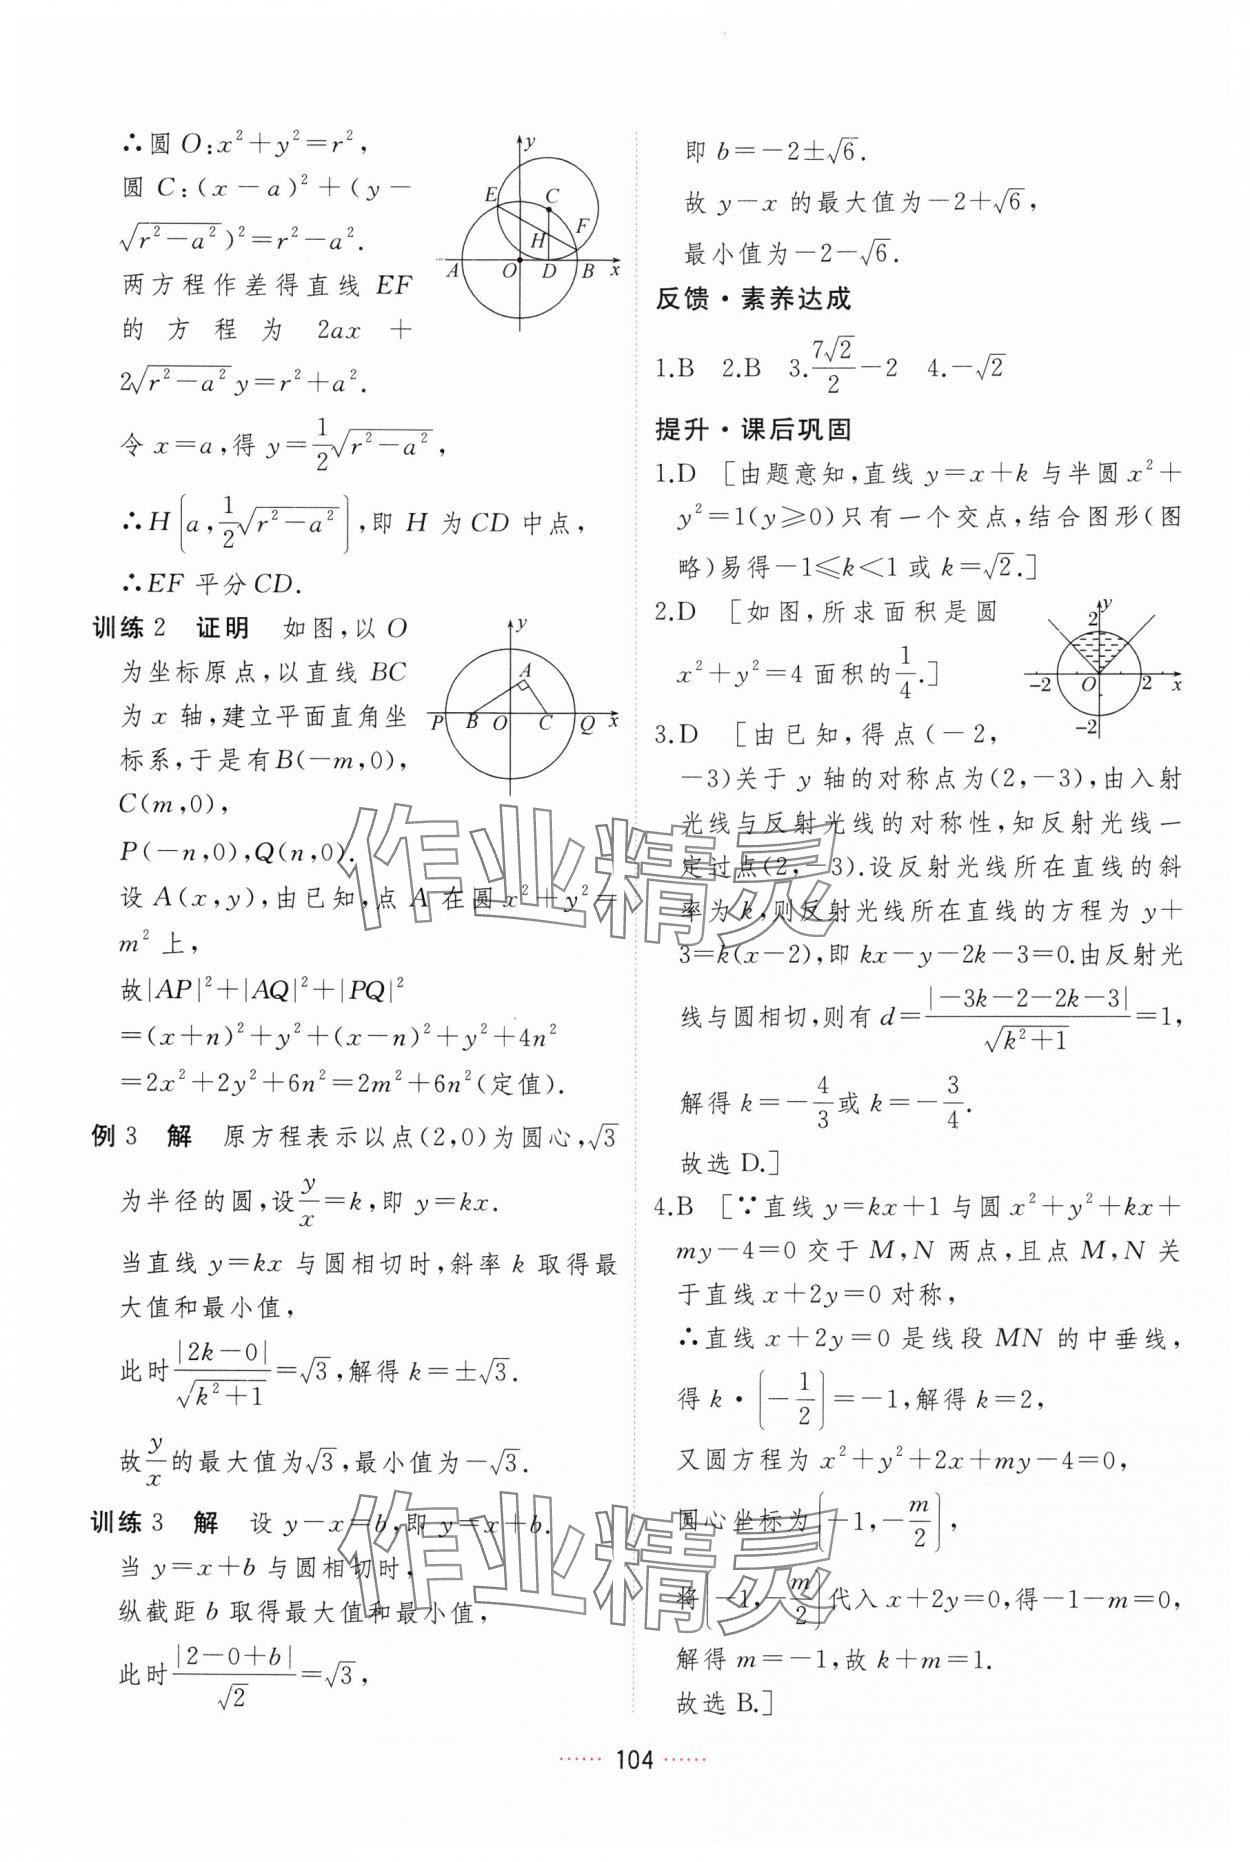 ∴圆 O:x²+y²=r²,
圆 C:(x-a)²+(y-
√(r²-a²))²=r²-a².
两方程作差得直线 EF
的方程为 2ax+
2√(r²-a²)y=r²+a².
令 x=a,得 y=1/2√(r²-a²),
∴H(a,1/2√(r²-a²)),即 H 为 CD 中点,
∴EF 平分 CD.
y
E
C
F
H
A
O
D
B
x
训练 2 证明 如图,以 O
为坐标原点,以直线 BC
为 x 轴,建立平面直角坐
标系,于是有 B(-m,0),
C(m,0),
P(-n,0),Q(n,0).
设 A(x,y),由已知,点 A 在圆 x²+y²=
m² 上,
故|AP|²+|AQ|²+|PQ|²
=(x+n)²+y²+(x-n)²+y²+4n²
=2x²+2y²+6n²=2m²+6n²(定值).
y
A
P
B
O
C
Q
x
例 3 解 原方程表示以点(2,0)为圆心,√3
为半径的圆,设y/x=k,即 y=kx.
当直线 y=kx 与圆相切时,斜率 k 取得最
大值和最小值,
此时|2k-0|/√(k²+1)=√3,解得 k=±√3.
故y/x的最大值为√3,最小值为-√3.
训练 3 解 设 y-x=b,即 y=x+b.
当 y=x+b 与圆相切时,
纵截距 b 取得最大值和最小值,
此时|2-0+b|/√2=√3,
即 b=-2±√6.
故 y-x 的最大值为-2+√6,
最小值为-2-√6.
反馈·素养达成
1.B 2.B 3.7√2/2-2 4.-√2
提升·课后巩固
1.D [由题意知,直线 y=x+k 与半圆 x²+
y²=1(y≥0)只有一个交点,结合图形(图
略)易得-1≤k<1 或 k=√2.]
2.D [如图,所求面积是圆
x²+y²=4 面积的1/4.]
y
2
-2
O
2
x
-2
3.D [由已知,得点(-2,
-3)关于 y 轴的对称点为(2,-3),由入射
光线与反射光线的对称性,知反射光线一
定过点(2,-3).设反射光线所在直线的斜
率为 k,则反射光线所在直线的方程为 y+
3=k(x-2),即 kx-y-2k-3=0.由反射光
线与圆相切,则有 d=|-3k-2-2k-3|/√(k²+1)=1,
解得 k=-4/3或 k=-3/4.
故选 D.]
4.B [∵直线 y=kx+1 与圆 x²+y²+kx+
my-4=0 交于 M,N 两点,且点 M,N 关
于直线 x+2y=0 对称,
∴直线 x+2y=0 是线段 MN 的中垂线,
得 k·(-1/2)=-1,解得 k=2,
又圆方程为 x²+y²+2x+my-4=0,
圆心坐标为(-1,-m/2),
将(-1,-m/2)代入 x+2y=0,得-1-m=0,
解得 m=-1,故 k+m=1.
故选 B.]
作业精灵
作业精灵
······ 104 ······